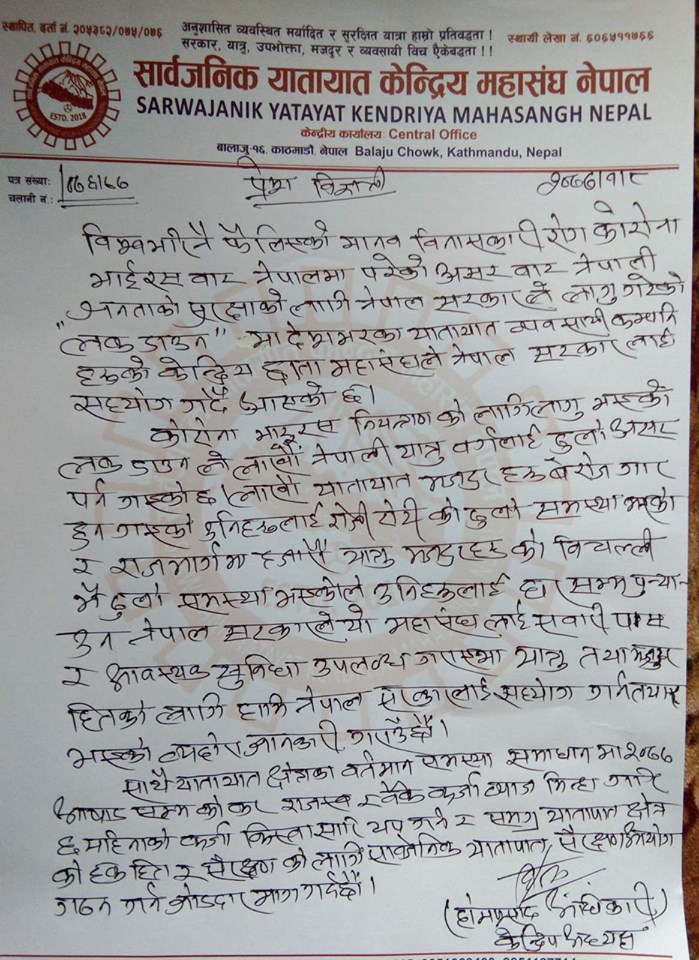 स्थापित. दर्ता नं. २०५३८२/०७५/०७६
अनुशासित व्यवस्थित मर्यादित र सुरक्षित यात्रा हाम्रो प्रतिवद्धता !
सरकार, यात्रु, उपभोक्ता, मजदुर र व्यवसायी विच ऐकेबद्धता ! !
स्थायी लेखा नं. ६०६५११७६६
सार्वजनिक यातायात केन्द्रिय महासंघ नेपाल
SARWAJANIK YATAYAT KENDRIYA MAHASANGH NEPAL
केन्द्रीय कार्यालयः Central Office
बालाजु-१६, काठमाडौं, नेपाल Balaju Chowk, Kathmandu, Nepal
ESTD. 2018
पत्र संख्याः ०७६/७७
चलानी नं.:
प्रेस विज्ञप्ती
विश्वभरी नै फैलिएको मानव विनासकारी रोग कोरोना
भाईरस बाट नेपालमा परेको असर बाट नेपाली
जनताको सुरक्षाको लागि नेपाल सरकार ले लागु गरेको
"लक डाउन" मा देशभरका यातायात व्यवसायी कम्पनि
हरुको केन्द्रिय छाता महासंघले नेपाल सरकार लाई
सहयोग गर्दै आएको छ।
कोरोना भाइरस नियन्त्रण को लागि लागु भएको
लक डाउन ले लाखौं नेपाली यात्रु वर्गलाई ठुलो असर
पर्न गएको छ। लाखौं यातायात मजदुर हरु बेरोजगार
हुन गएको उनिहरुलाई रोजी रोटी को ठुलो समस्या भएको
र राजमार्गमा हजारौं यात्रु मजदुरहरु को विचल्ली
भै ठुलो समस्या भएकोले उनिहरुलाई घर सम्म पुर्‍या-
उन नेपाल सरकारले यो महासंघ लाई सवारी पास
र आवश्यक सुविधा उपलब्ध गराएमा यात्रु तथा मजदुर
हितको लागि हामि नेपाल सरकारलाई सहयोग गर्न तयार
भएको व्यहोरा जानकारी गराउँछौं।
साथै यातायात क्षेत्रका वर्तमान समस्या समाधान मा २०७७
आषाढ सम्म को कर राजस्व र बैंक कर्जा व्याज मिन्हा गरि
६ महिनाको कर्जा किस्ता सारि थप गर्न र समग्र यातायात क्षेत्र
को हक हित र संरक्षण को लागि सार्वजनिक यातायात संरक्षण आयोग
गठन गर्न जोडदार माग गर्दछौं।
(होमप्रसाद अधिकारी)
केन्द्रिय अध्यक्ष